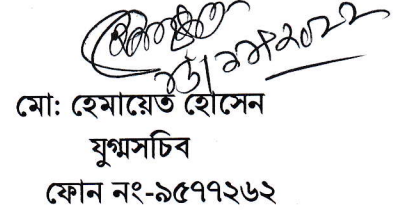 মো: হেমায়েত হোসেন
যুগ্মসচিব
ফোন নং-৯৫৭৭২৬২